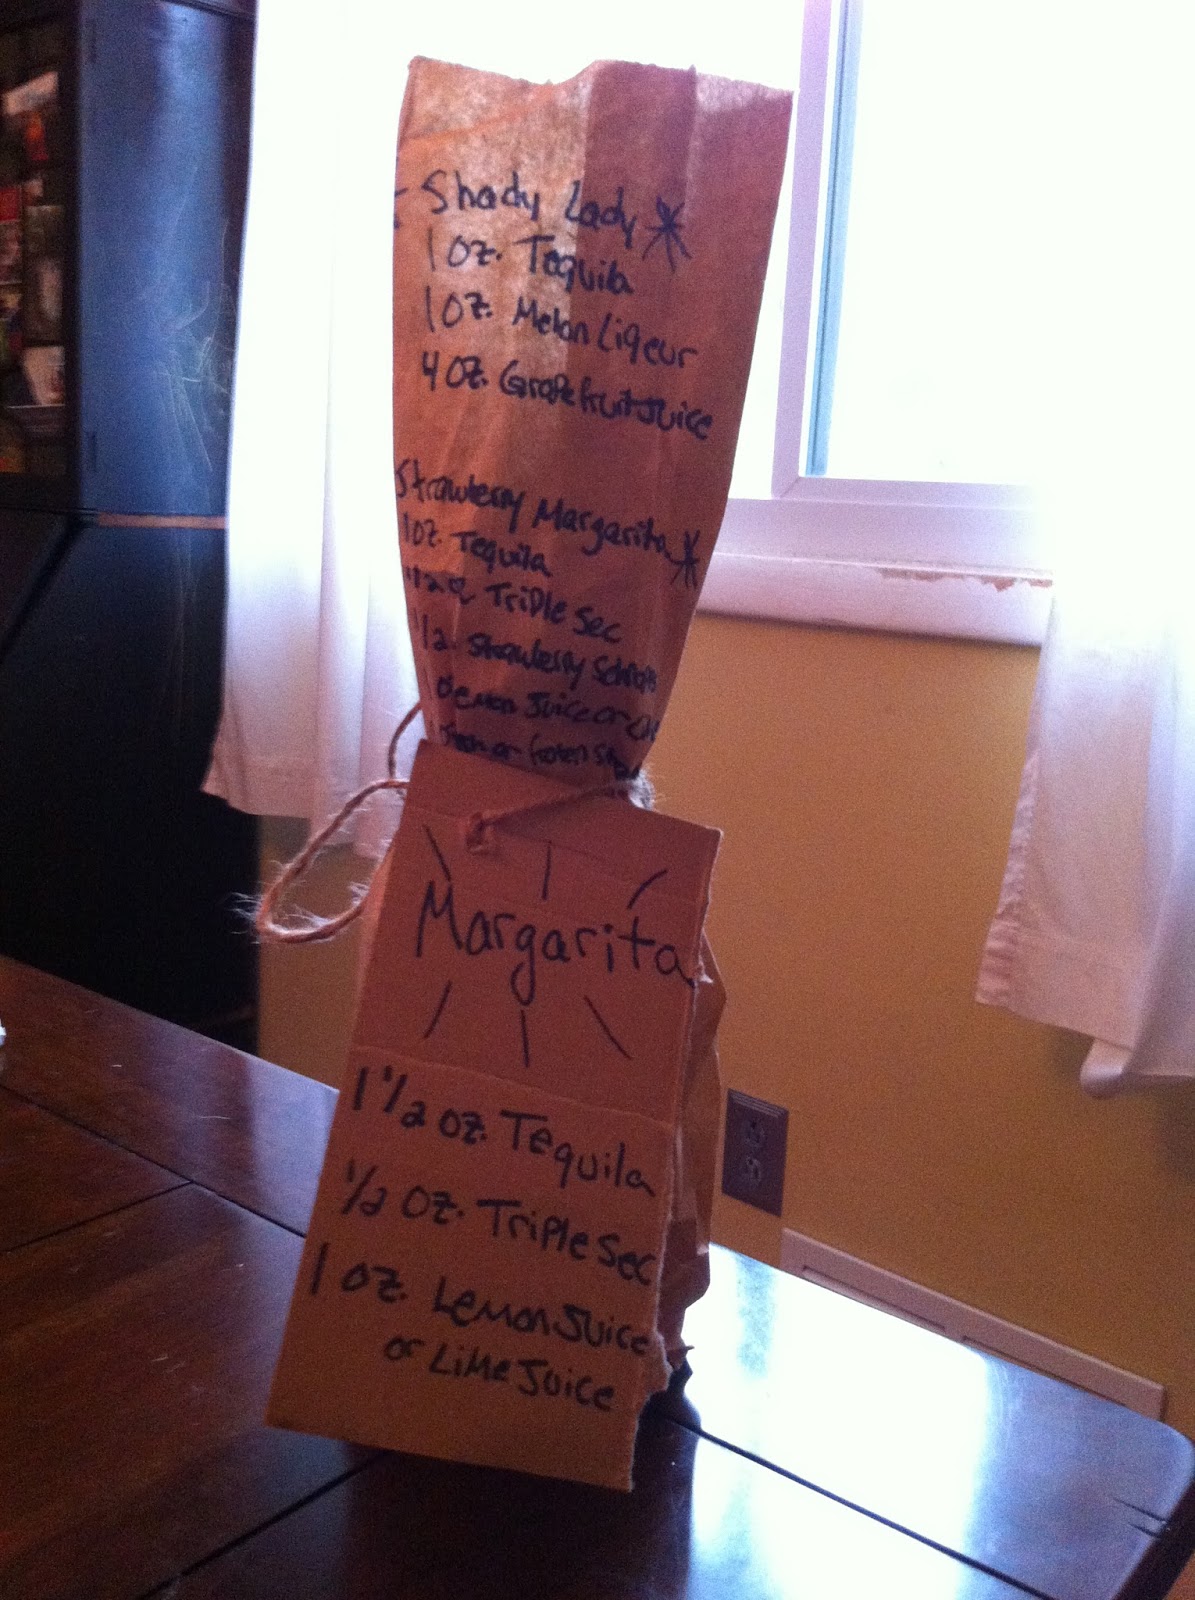 Shady Lady
1 oz. Tequila
1 oz. Melon Liqeur
4 oz. Grapefruit Juice
Strawberry Margarita
1 oz. Tequila
1/2 oz Triple Sec
1/2. Strawberry
Lemon Juice or
or frozen
Margarita
1 1/2 oz. Tequila
1/2 oz. Triple Sec
1 oz. Lemon Juice
or Lime Juice